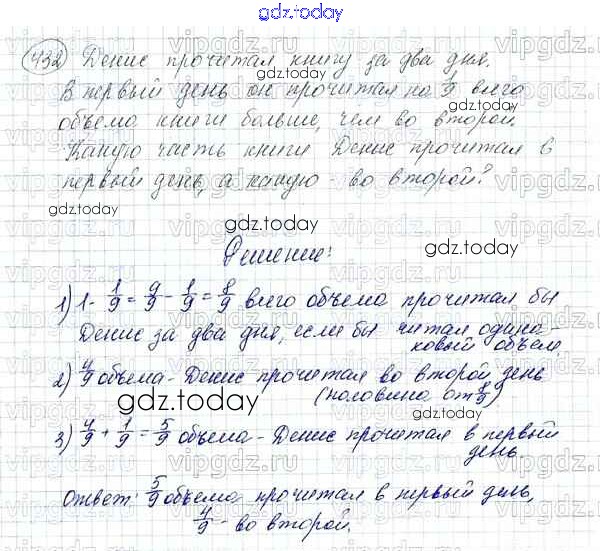 gdz.today
432) Денис прочитал книгу за два дня.
В первый день он прочитал на 1/9 всего
объема книги больше, чем во второй.
Какую часть книги Денис прочитал в
первый день, а какую - во второй?
Решение:
1) 1 - 1/9 = 9/9 - 1/9 = 8/9 всего объема прочитал бы
Денис за два дня, если бы читал одина-
ковый объем.
2) 4/9 объема - Денис прочитал во второй день
(половина от 8/9)
3) 4/9 + 1/9 = 5/9 объема - Денис прочитал в первый
день.
Ответ: 5/9 объема прочитал в первый день,
4/9 - во второй.
gdz.today
gdz.today
gdz.today
gdz.today
gdz.today
gdz.today
gdz.today